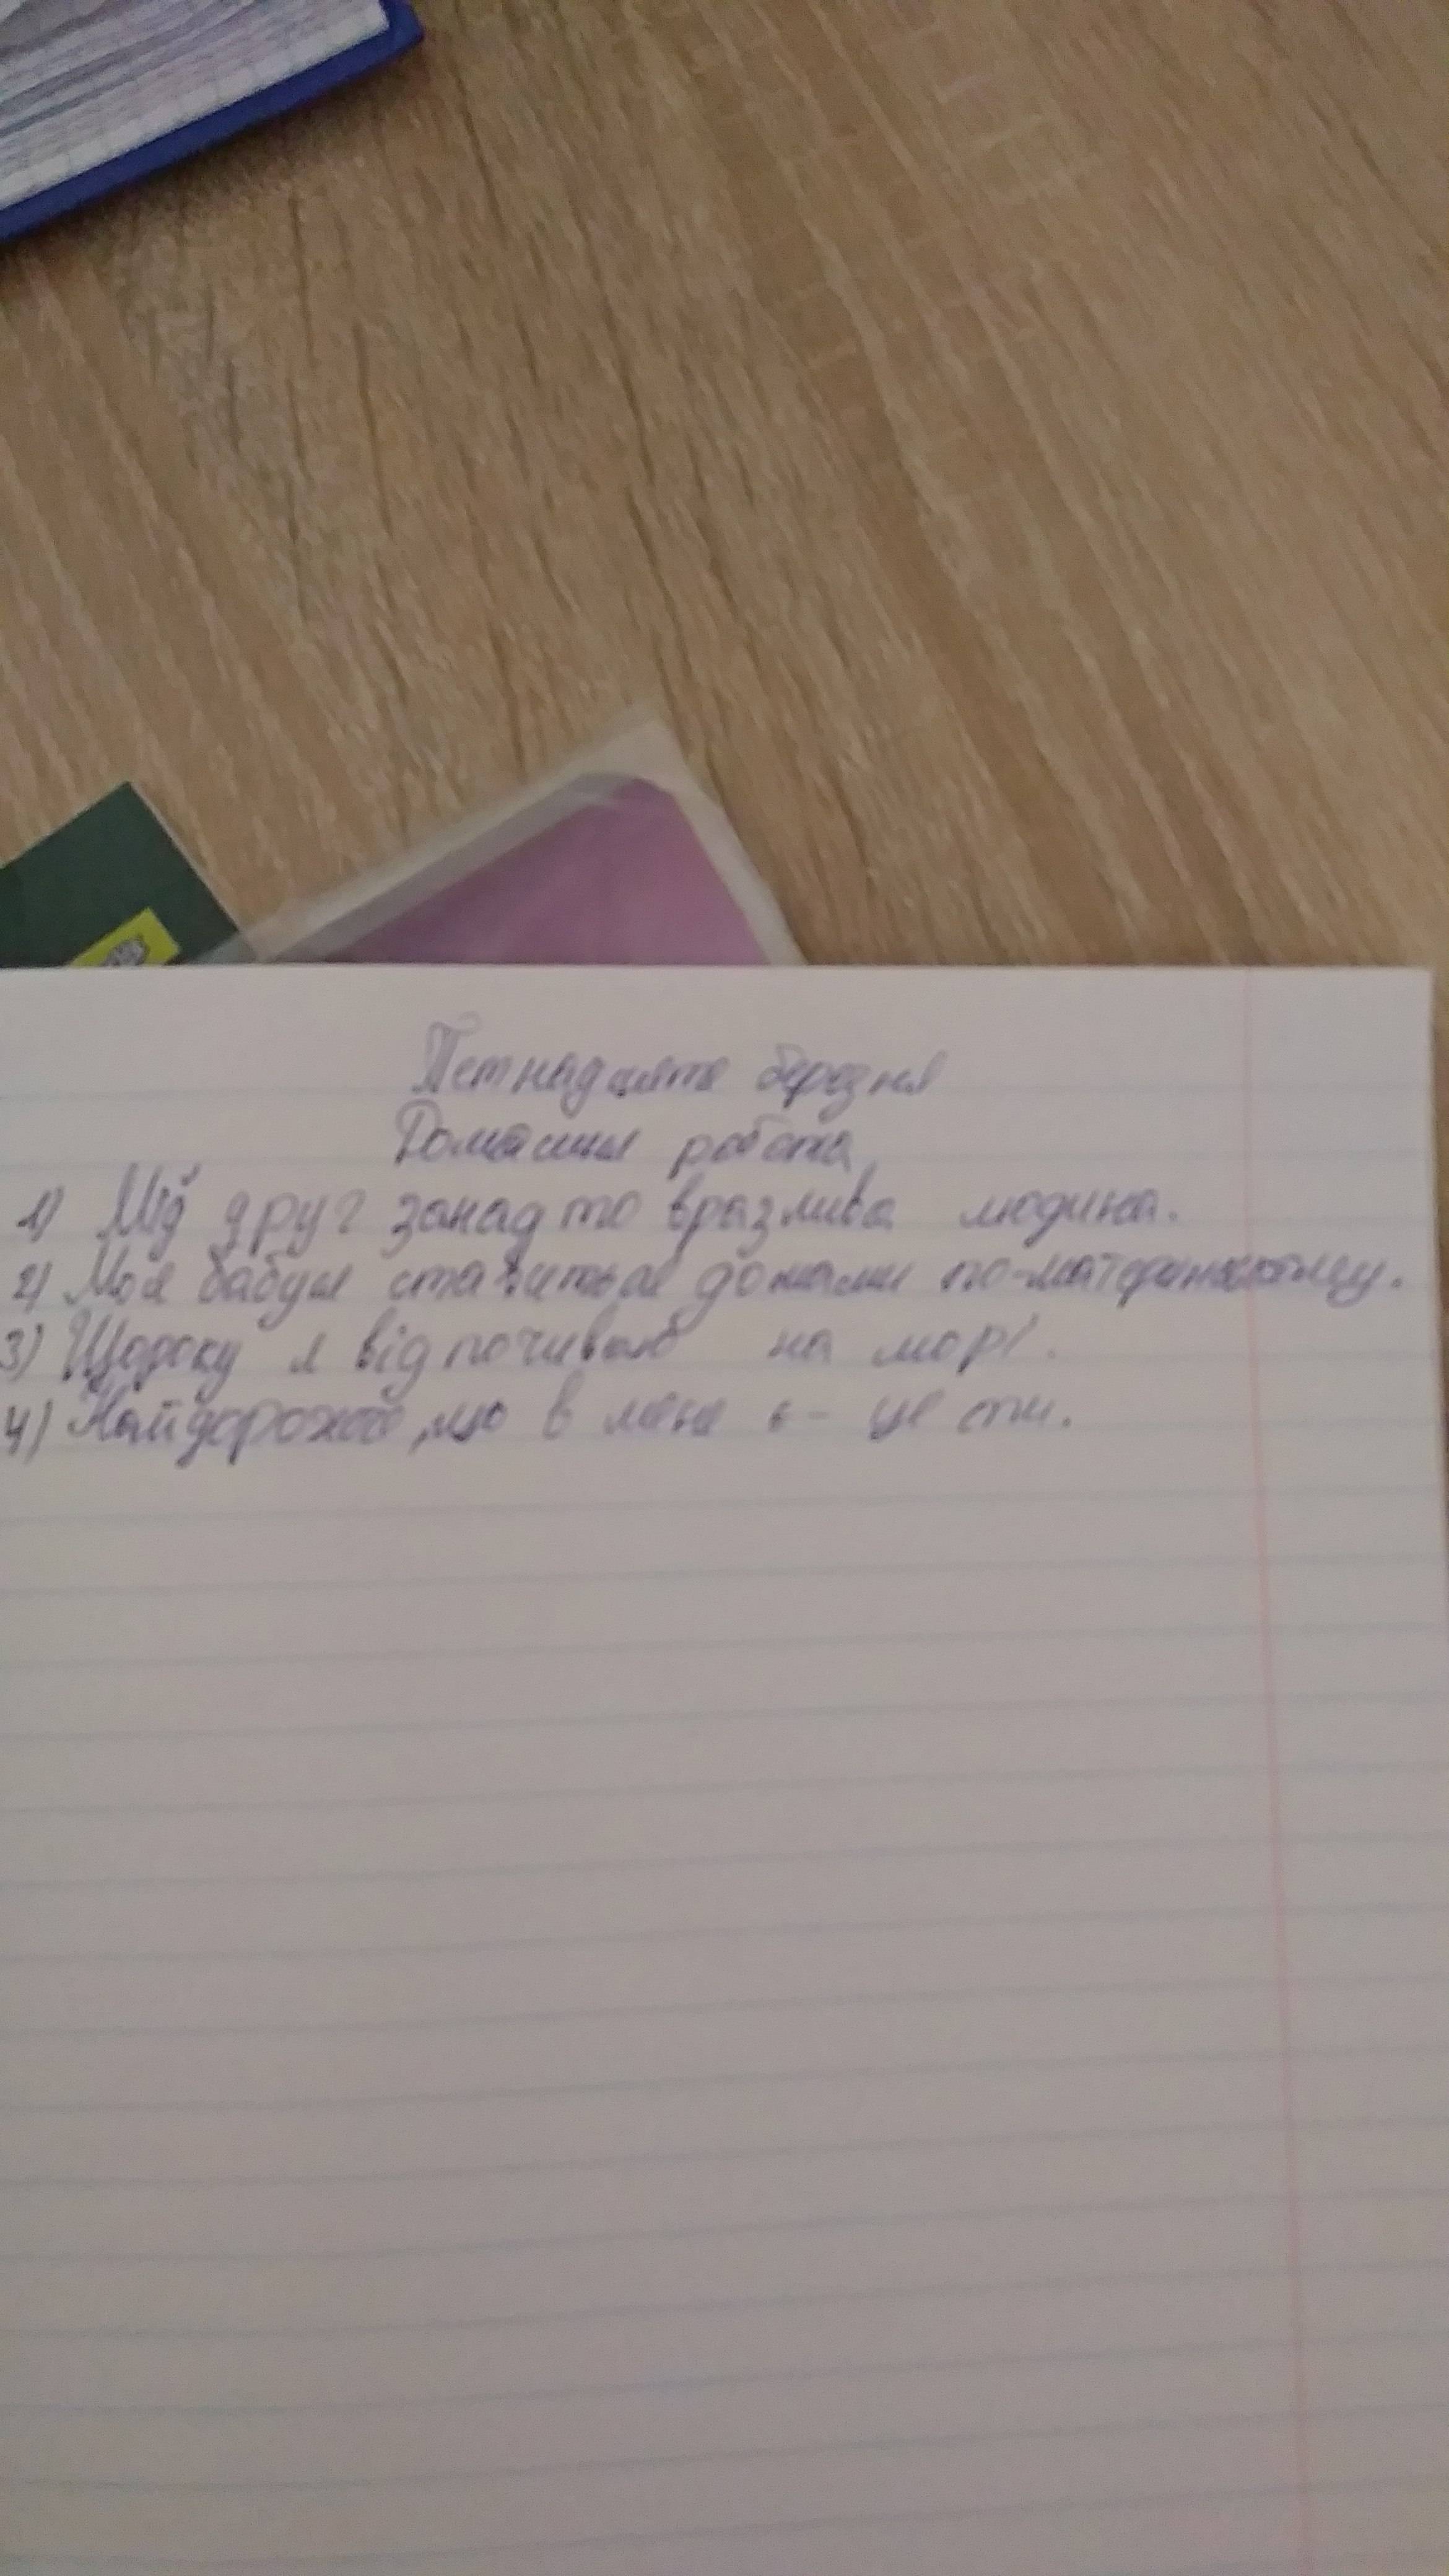 Пʼятнадцяте березня
Домашня робота
1) Мій друг занадто вразлива людина.
2) Моя бабуся ставиться до мами по-материнському.
3) Щороку я відпочиваю на морі.
4) Найдорожче, що в мене є - це ти.